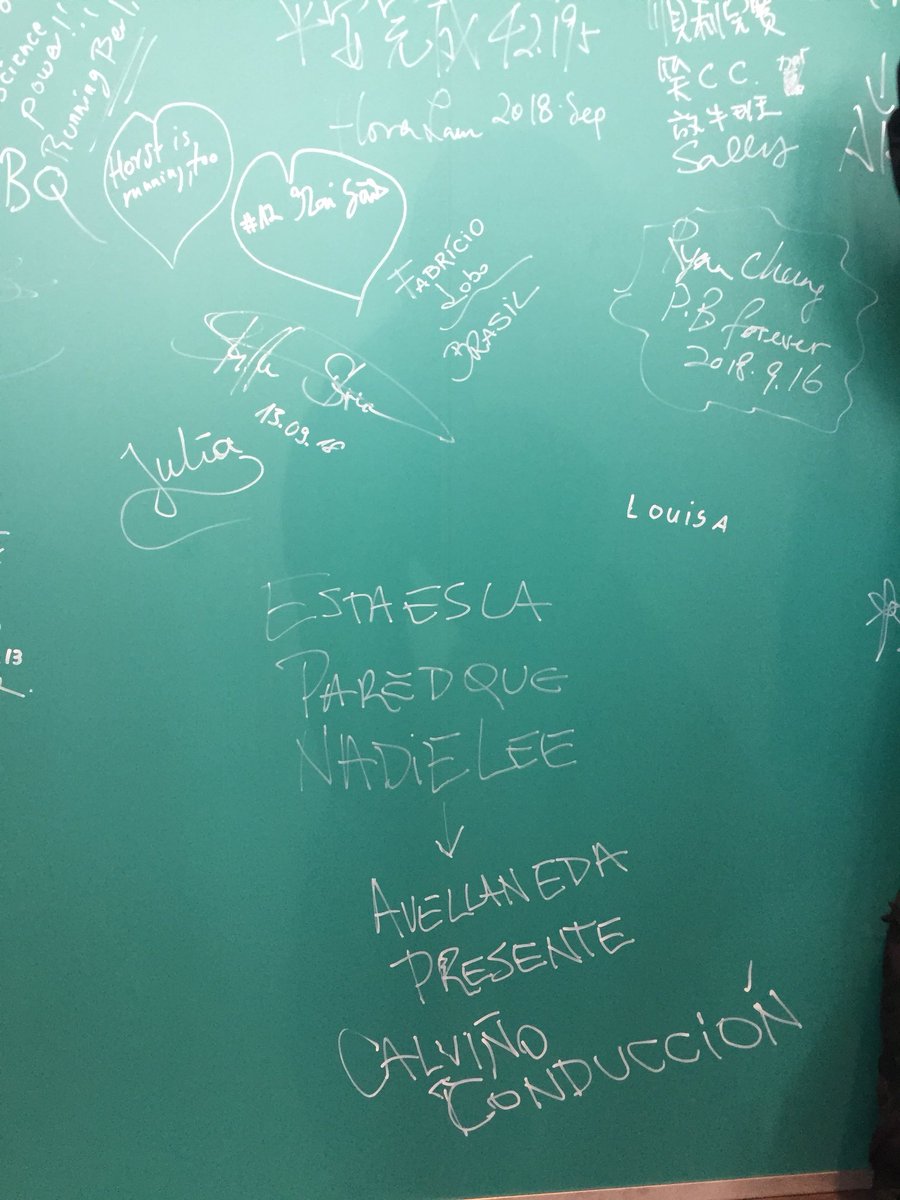 Science
Power!!!
Running Ber
BQ
Horst is
running, too
平完成 42.195
2018 Sep
順利完賽
CC.
放牛班
Sally
#12
FABRÍCIO
Lobo
BRASIL
Ryan Cheung
P.B forever
2018.9.16
13.09.18
Julia
LOUISA
ESTA ES LA
PARED QUE
NADIE LEE
13
AVELLANEDA
PRESENTE
CALVIÑO
CONDUCCIÓN